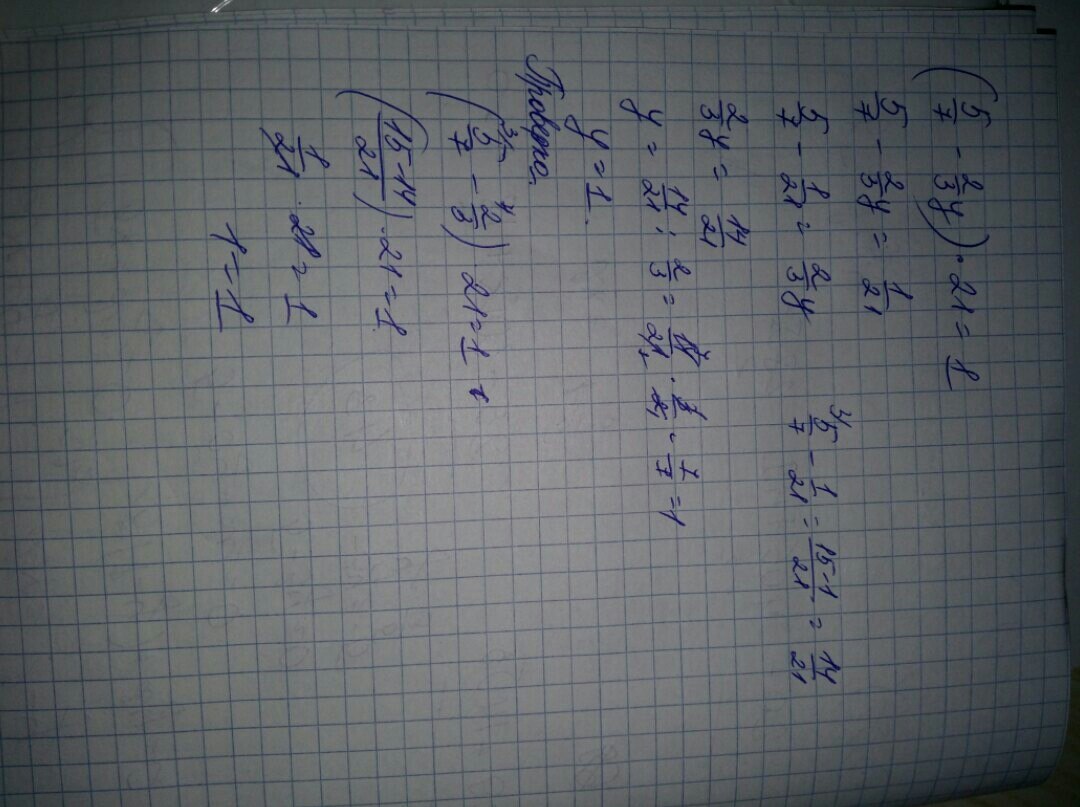 (5/7 - 2/3 y) · 21 = 1
5/7 - 2/3 y = 1/21
5/7 - 1/21 = 2/3 y
3/ 5/7 - 1/21 = 15-1/21 = 14/21
2/3 y = 14/21
y = 14/21 : 2/3 = 14/21 · 3/2 = 7/7 = 1
y = 1.
Проверка.
(3/ 5/7 - 2/3) 21 = 1
(15-14/21) · 21 = 1.
1/21 · 21 = 1
1 = 1